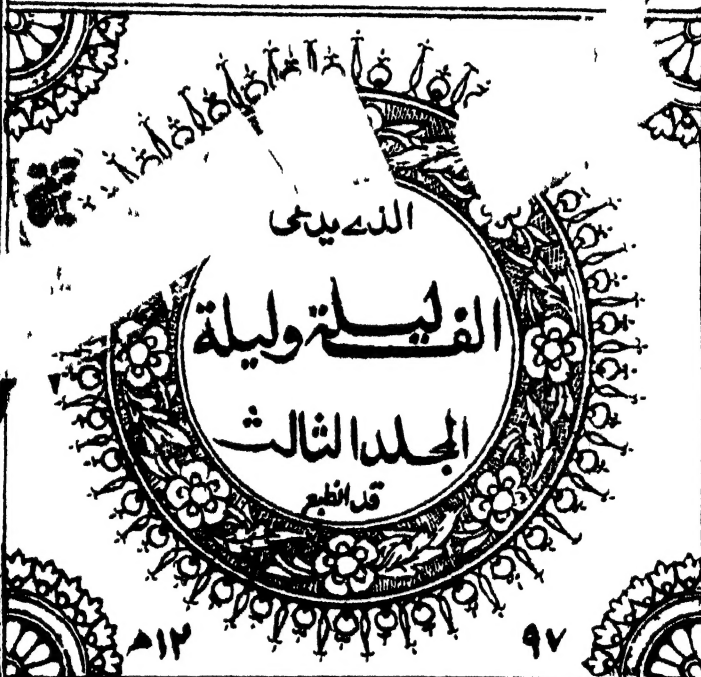 الذے يدعى
الف ليلة وليلة
المجلد الثالث
قد انطبع
١٢ھ ٩٧